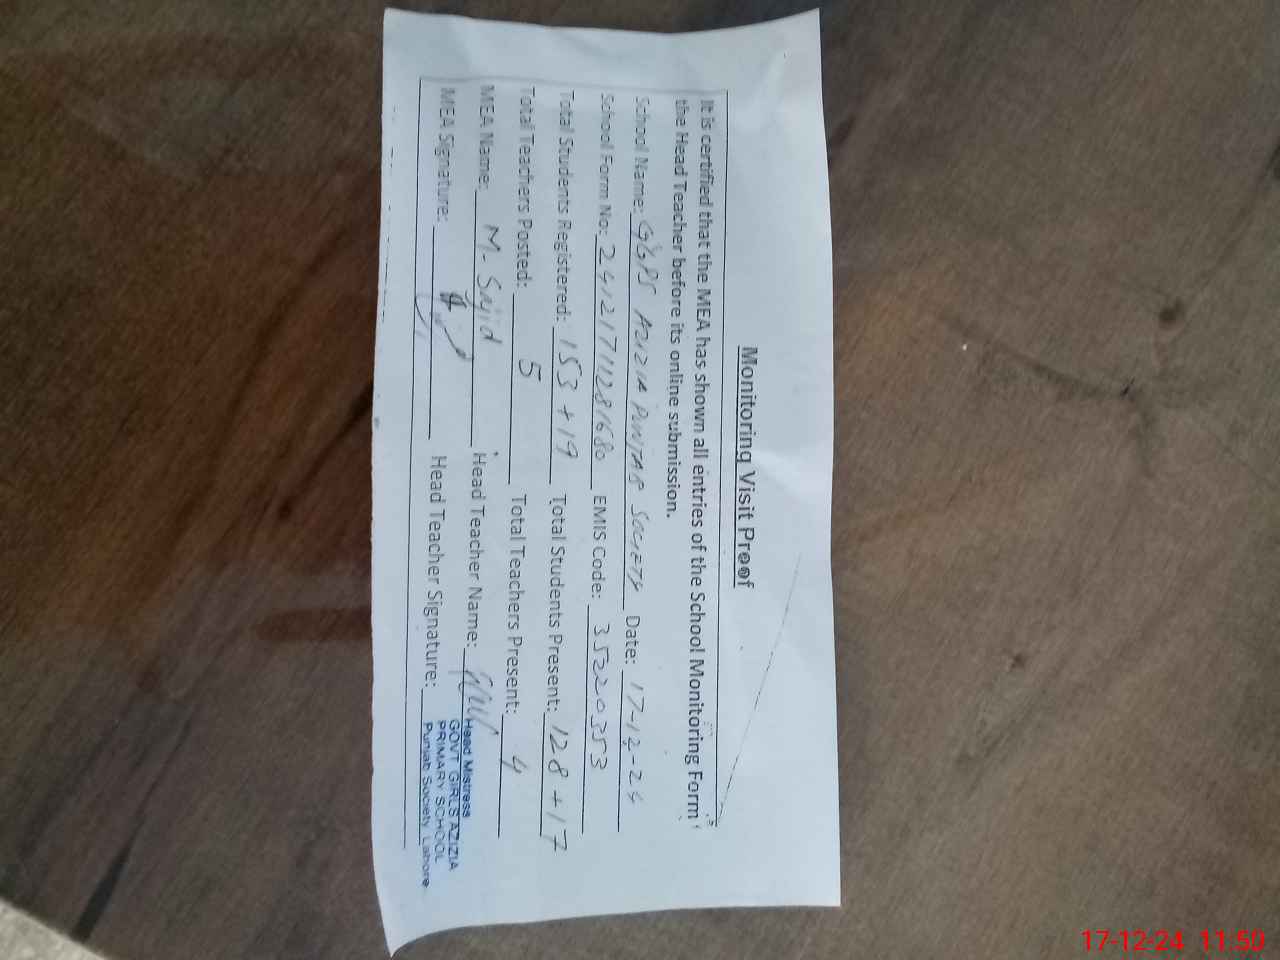 Monitoring Visit Proof
It is certified that the MEA has shown all entries of the School Monitoring Form
the Head Teacher before its online submission.
School Name: GGPS AZIZIA PUNJAB SOCIETY Date: 17-12-24
School Form No: EMIS Code: 35220353
Total Students Registered: 153 + 19 Total Students Present: 128 + 17
Total Teachers Posted: 5 Total Teachers Present: 4
MEA Name: M- Sajid Head Teacher Name:
MEA Signature: Head Teacher Signature:
Head Mistress
GOVT GIRLS AZIZIA
PRIMARY SCHOOL
Punjab Society Lahore
17-12-24 11:50